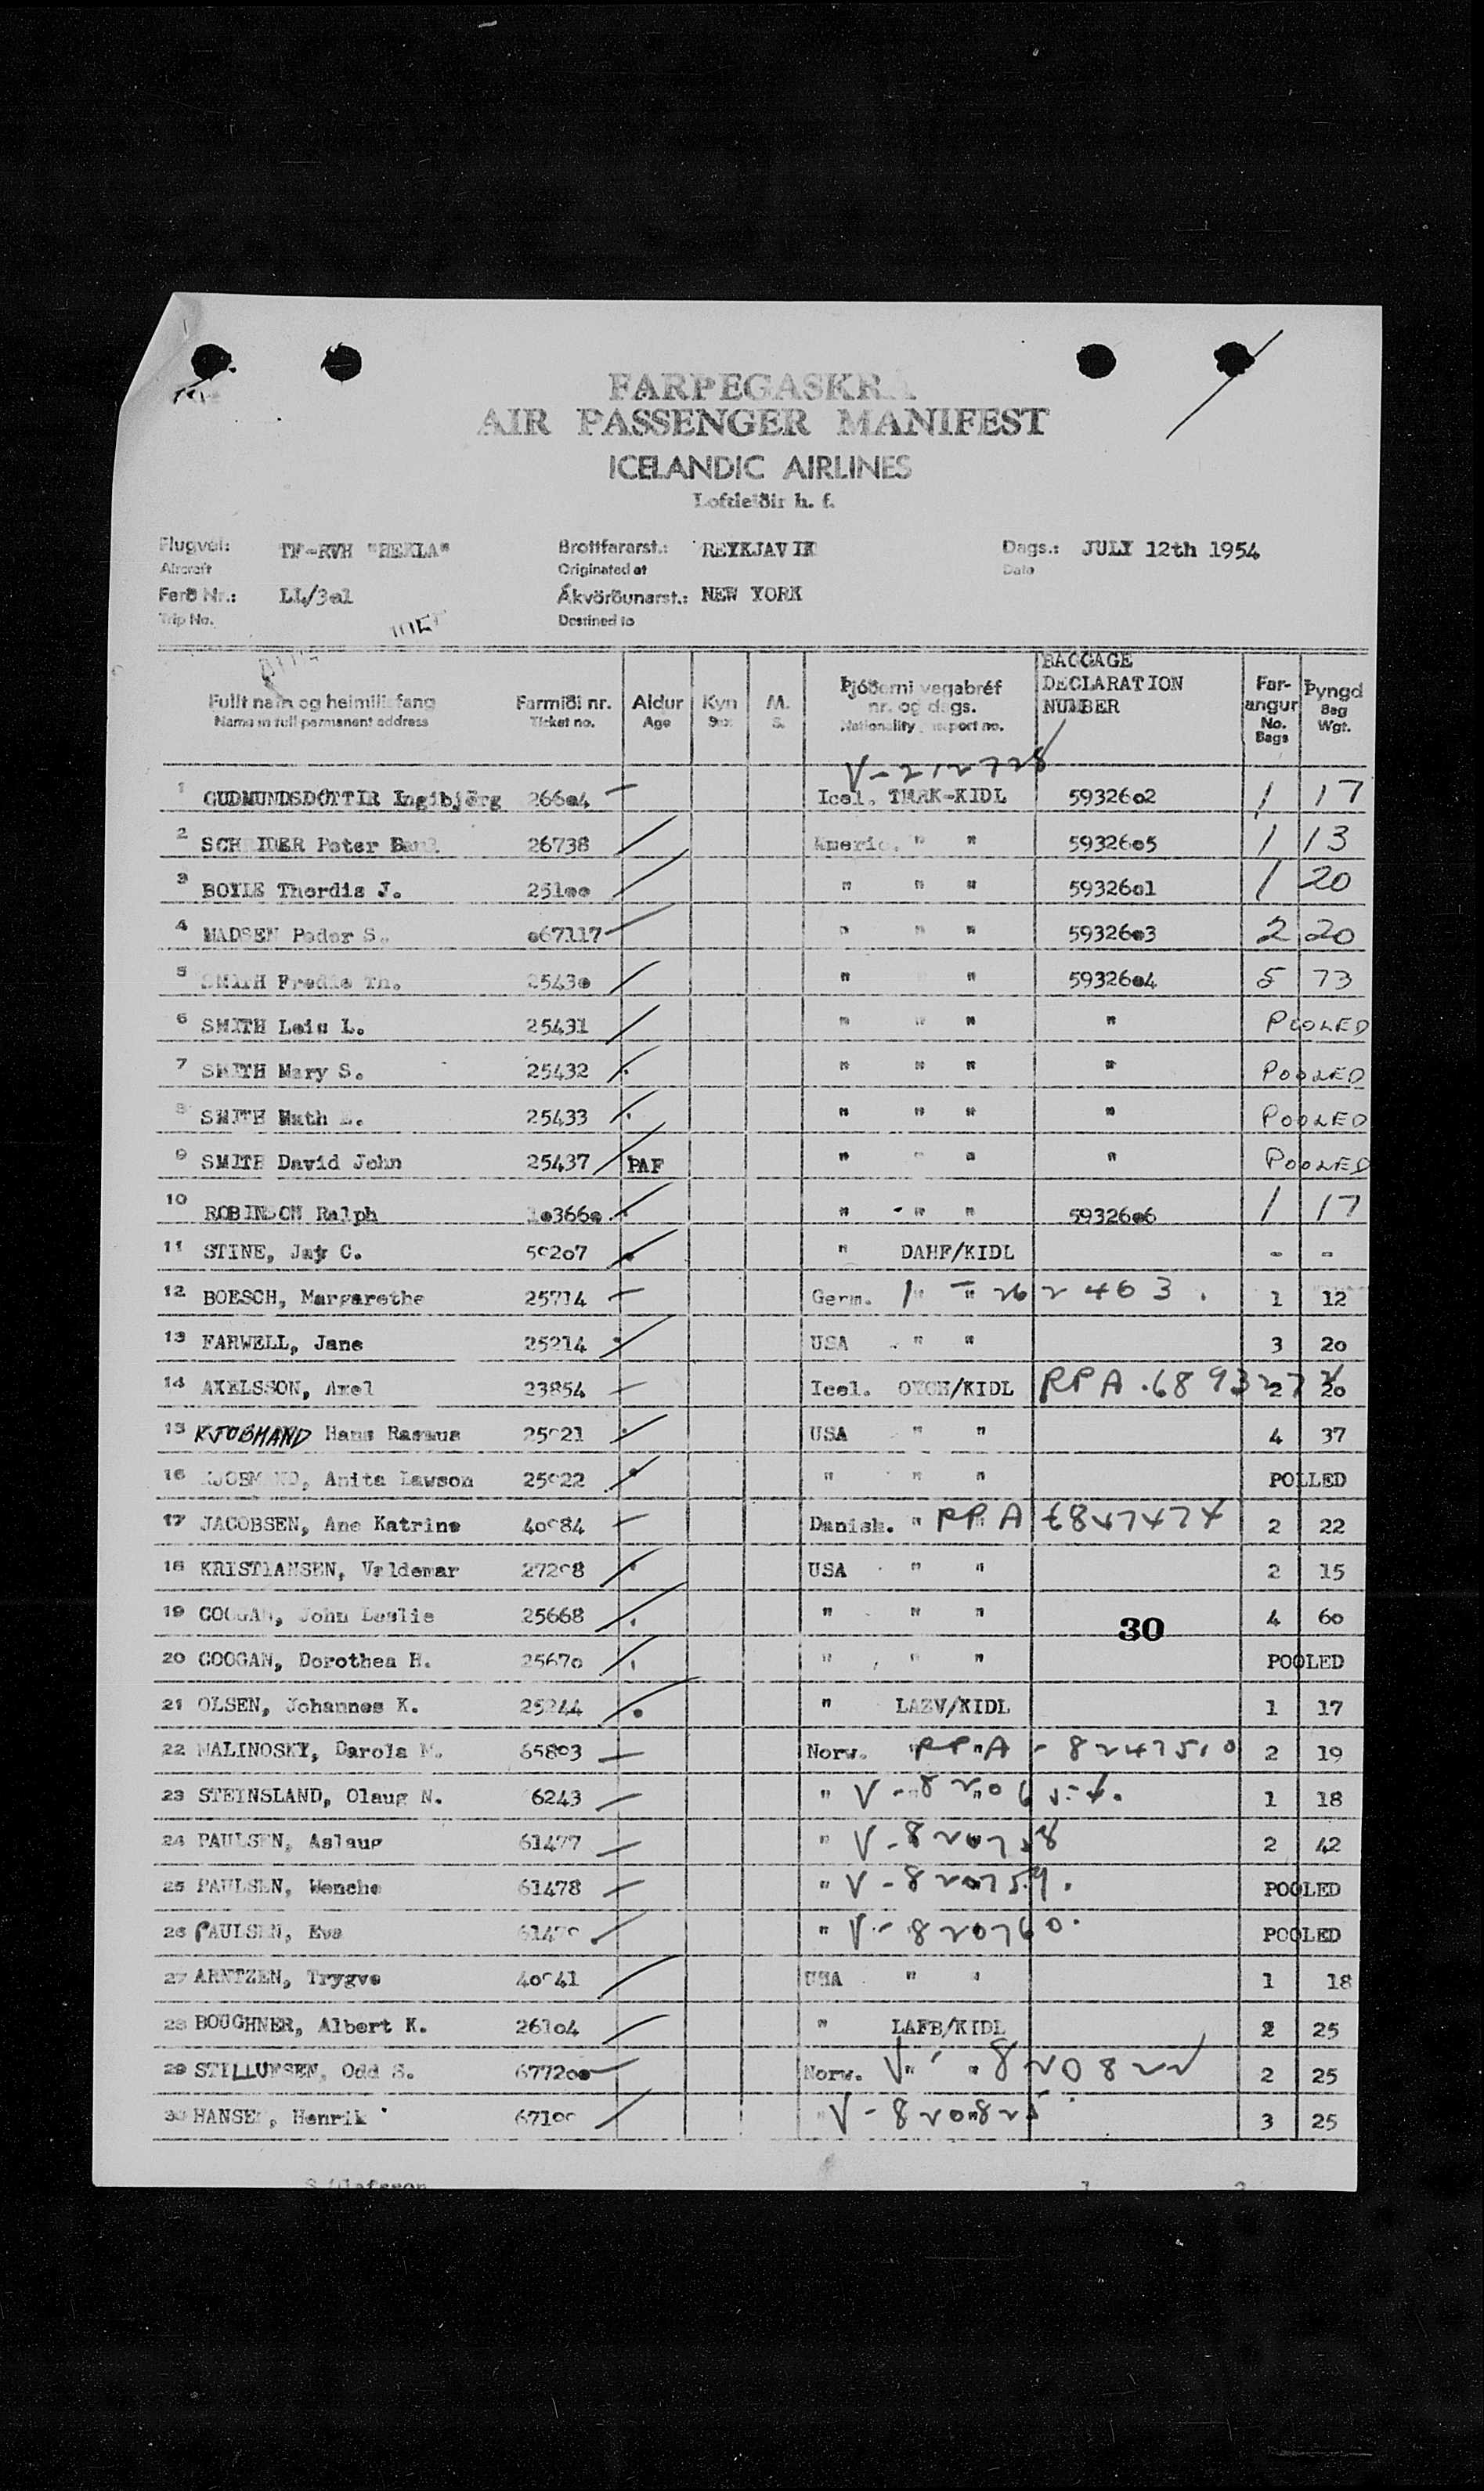 FARÞEGASKRÁ
AIR PASSENGER MANIFEST
ICELANDIC AIRLINES
Loftleiðir h. f.
Flugvél: TF-RVH "HEKLA" Brottfararst.: REYKJAVIK Dags.: JULY 12th 1954
Aircraft Originated at Date
Ferð Nr.: LL/3o1 Ákvörðunarst.: NEW YORK
Trip No. Destined to
Fullt nafn og heimilisfang Farmiði nr. Aldur Kyn M. Þjóðerni vegabréf nr. og dags. BAGGAGE DECLARATION NUMBER Farangur Þyngd
Name in full permanent address Ticket no. Age Sex S. Nationality port no. No. Bags Bag Wgt.
V-212728
1 GUDMUNDSDÓTTIR Ingibjörg 266o4 Icel. TMRK-KIDL 59326o2 1 17
2 Peter 26738 Americ. " " 59326o5 1 13
3 BOYLE Thordis J. 251oo " " " 59326o1 1 20
4 MADSEN Peder S. o67117 " " " 59326o3 2 20
5 SMITH Fredie Th. 2543o " " 59326o4 5 73
6 SMITH Lois L. 25431 " " " " POOLED
7 SMITH Mary S. 25432 " " " " POOLED
8 SMITH 25433 " " " " POOLED
9 SMITH David John 25437 PAF " " " " POOLED
10 ROBINSON Ralph 1o366o " " " 59326o6 1 17
11 STINE, Jay C. 5o2o7 " DAHF/KIDL - -
12 BOESCH, Margarethe 25714 Germ. " " 1 - 262463. 1 12
13 FARWELL, Jane 25214 USA " " 3 20
14 AXELSSON, Axel 23854 Icel. OYCH/KIDL RPA. 2 20
15 KJOBMAND Hans Rasmus 25o21 USA " " 4 37
16 KJOBMAND, Anita Lawson 25o22 " " " POLLED
17 JACOBSEN, Ane Katrine 40o84 Danish. " " RPA 2 22
18 KRISTIANSEN, Valdemar 272o8 USA " " 2 15
19 COOGAN, John Leslie 25668 " " " 4 60
30
20 COOGAN, Dorothea H. 2567o " " " POOLED
21 OLSEN, Johannes K. 25244 " LAZV/KIDL 1 17
22 MALINOSKY, Darola M. 658o3 Norw. " " RPA - 8247510 2 19
23 STEINSLAND, Olaug N. 6243 " V - 820654. 1 18
24 PAULSEN, Aslaug 61477 " V - 820758 2 42
25 PAULSEN, Wenche 61478 " V - 820759. POOLED
26 PAULSEN, Eva " V - 820760. POOLED
27 ARNTZEN, Trygve 40o41 USA " " 1 18
28 BOUGHNER, Albert K. 261o4 " LAFB/KIDL 2 25
29 Odd S. 6772oo Norw. " " V - 820822 2 25
30 HANSEN, Henrik 671oo " V - 820825 3 25